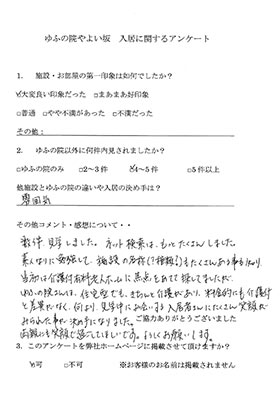 ゆふの院やよい坂　入居に関するアンケート
1．施設・お部屋の第一印象は如何でしたか？
☑大変良い印象だった　□まあまあ好印象
□普通　□やや不満があった　□不満だった
その他：
2．ゆふの院以外に何件内見されましたか？
□ゆふの院のみ　□2～3件　☑4～5件　□5件以上
他施設とゆふの院の違いや入居の決め手は？
雰囲気
その他コメント・感想について・・
数件、見学しました。ネット検索は、もっとたくさんしました。
素人なりに勉強して、施設の名称（種類）もたくさんある事を知り、
当初は介護付有料老人ホームに焦点をあてて探してましたが、
ゆふの院さんは、住宅型でも、きちんと介護があり、料金的にも介護付
と差異がなく、何より、見学中にお会いする入居者さんにたくさん笑顔が
みられた事が、決め手になりました。ご協力ありがとうございました
両親にも笑顔で過ごしてほしいです。よろしくお願いします。
3．このアンケートを弊社ホームページに掲載させて頂けますか？
☑可　□不可　※お客様のお名前は掲載されません